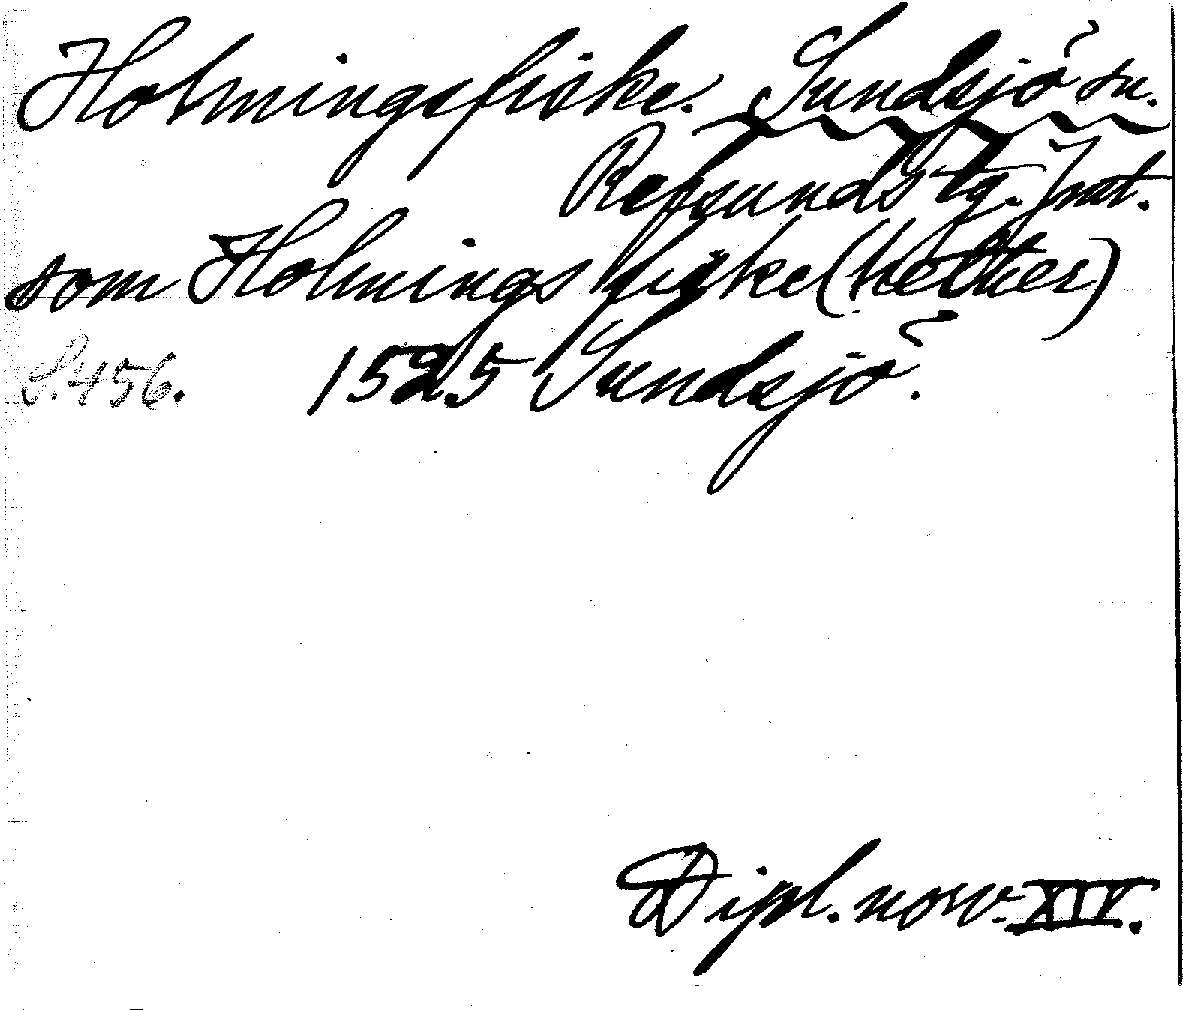 Holmingsfiske. Sundsjö sn.
Refsunds tg. Jmt.
som Holmings fiske (hetther)
S. 456. 1525 Sundsjö.
Dipl. norv. XIV.